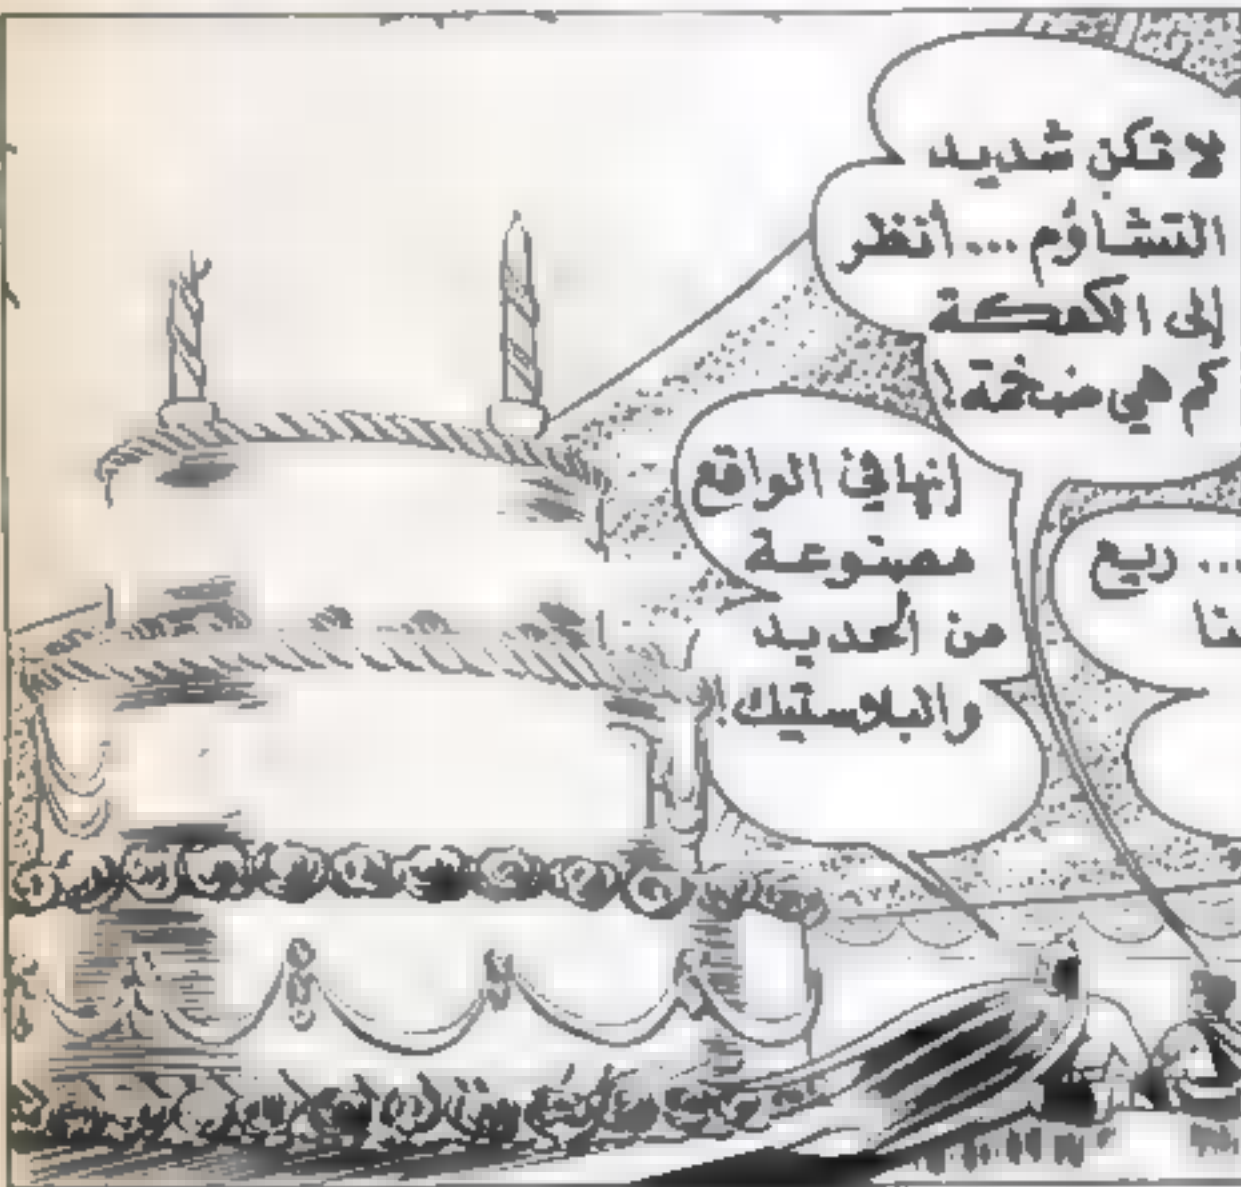 لا تكن شديد
التشاؤم ... أنظر
إلى الكعكة
كم هي ضخمة!
إنها في الواقع
مصنوعة
من الحديد
والبلاستيك!
... ريع